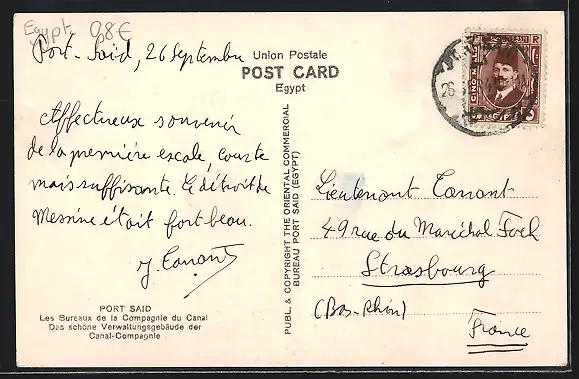 Egypt 0,8€
Port-Said, 26 Septembre
Union Postale
POST CARD
Egypt
Affectueux souvenir
de la première escale, courte
mais suffisante. Le détroit de
Messine était fort beau.
J. Tanant
PORT SAID
Les Bureaux de la Compagnie du Canal
Das schöne Verwaltungsgebäude der
Canal-Compagnie
PUBL. & COPYRIGHT THE ORIENTAL COMMERCIAL
BUREAU PORT SAID (EGYPT)
26
CINQ MILLS
EGYPT
5
Lieutenant Tanant
49 rue du Maréchal Foch
Strasbourg
(Bas-Rhin)
France